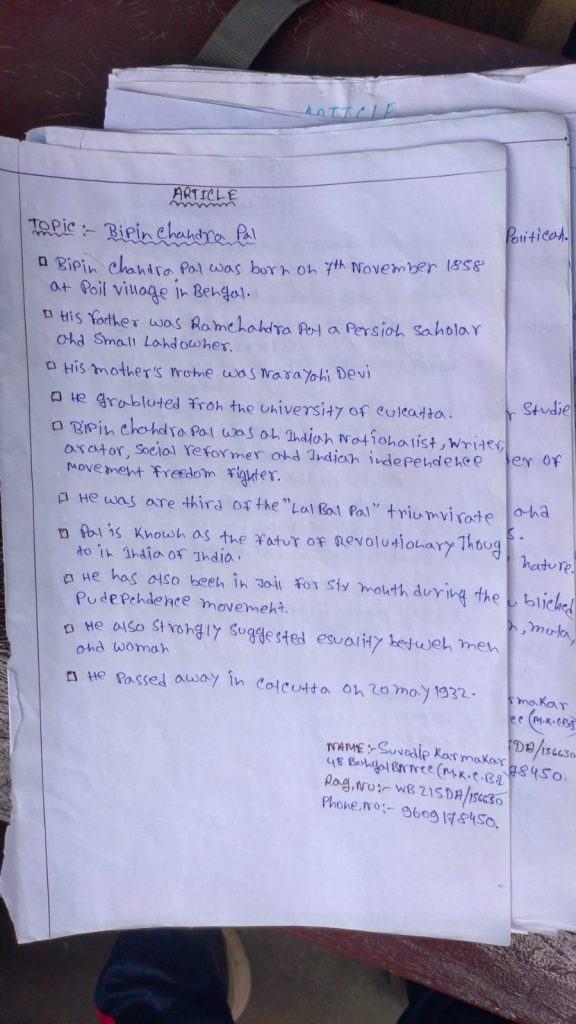 ARTICLE
ARTICLE
TOPIC :- Bipin Chandra Pal
Bipin Chandra Pal was born on 7th November 1858
at Poil village in Bengal.
His Father was Ramchandra Pal a Persion Saholar
and Small Landowner.
His mother's Name was Narayani Devi
He grabluted From the University of Culcatta.
Bipin Chandra Pal was an Indian Nationalist, Writer,
arator, Social reformer and Indian independence
Movement Freedom Fighter.
He was are third of the "Lal Bal Pal" triumvirate
Pal is Known as the Fatur of Revolutionary Thoug
to in India of India.
He has also been in Jail For Six mouth during the
Pudepehdence movement.
He also Strongly Suggested esuality betweh men
and woman
He Passed away in Calcutta on 20 may 1932.
NAME :- Suvadip Karmakar
48 Bengal BN NCC (M.K.C.B.
Rag, No :- WB21SDA/156630
Phone, No :- 9609178450.
Political.
Studie
er of
and
s.
nature.
bliched
rmakar
CC (M.K.C.B
SDA/156630
78450.